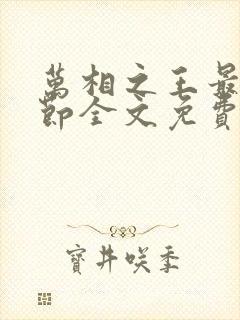 萬相之王最
節全文免費
寶井咲季